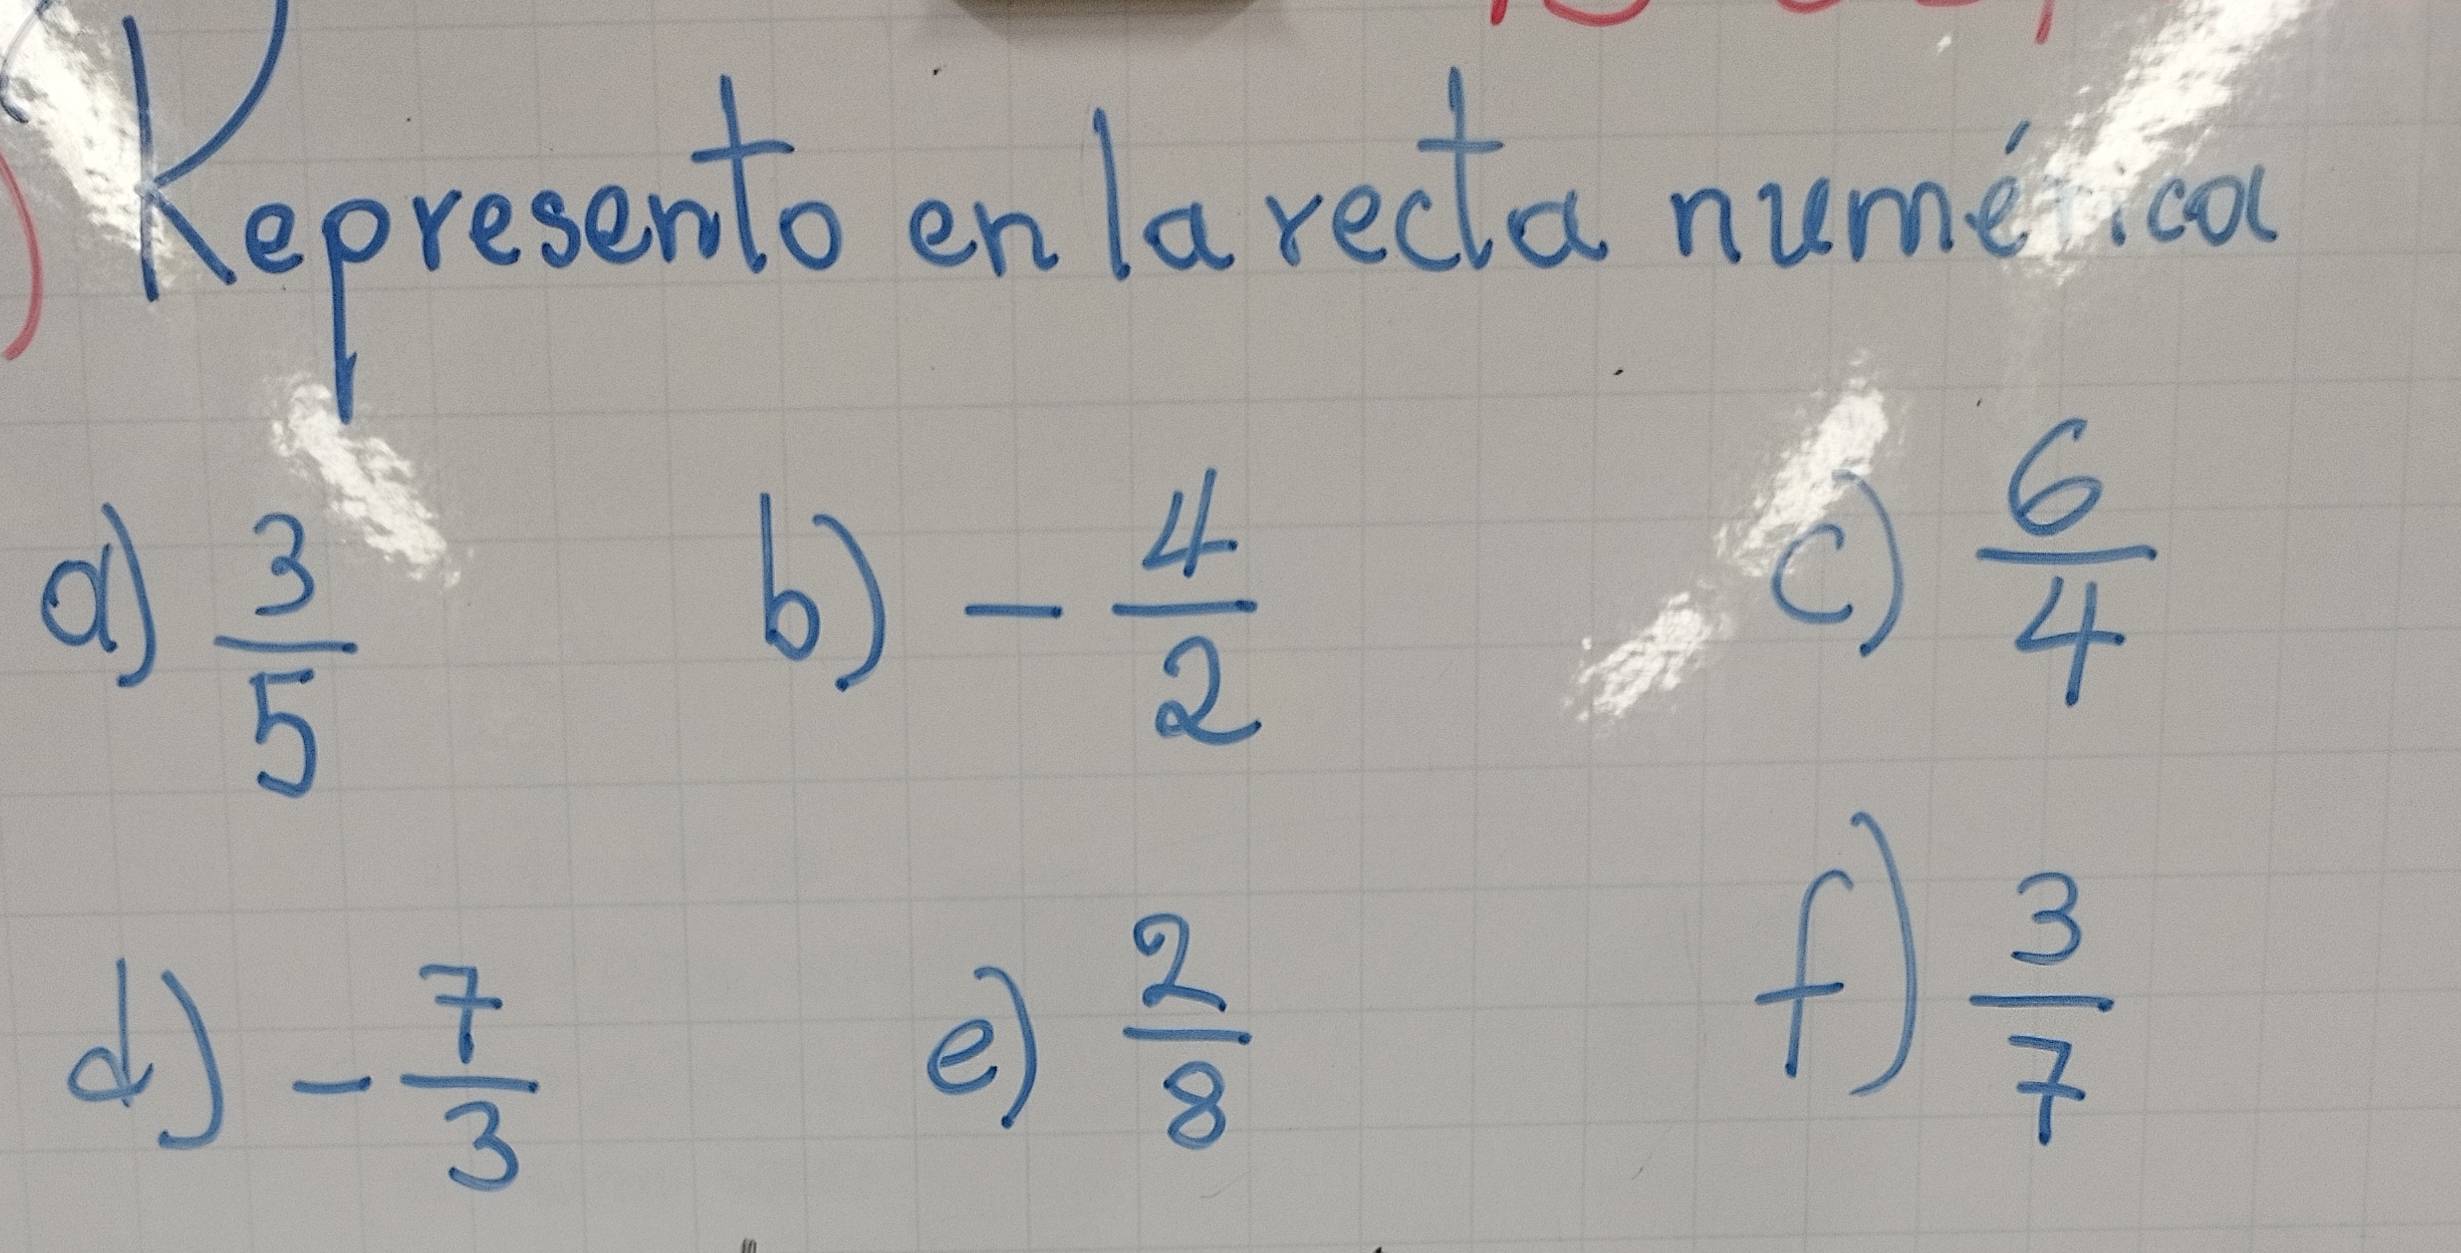 Represento en la recta numérica
a) 3/5 b) - 4/2 c) 6/4
d) - 7/3 e) 2/8 f) 3/7